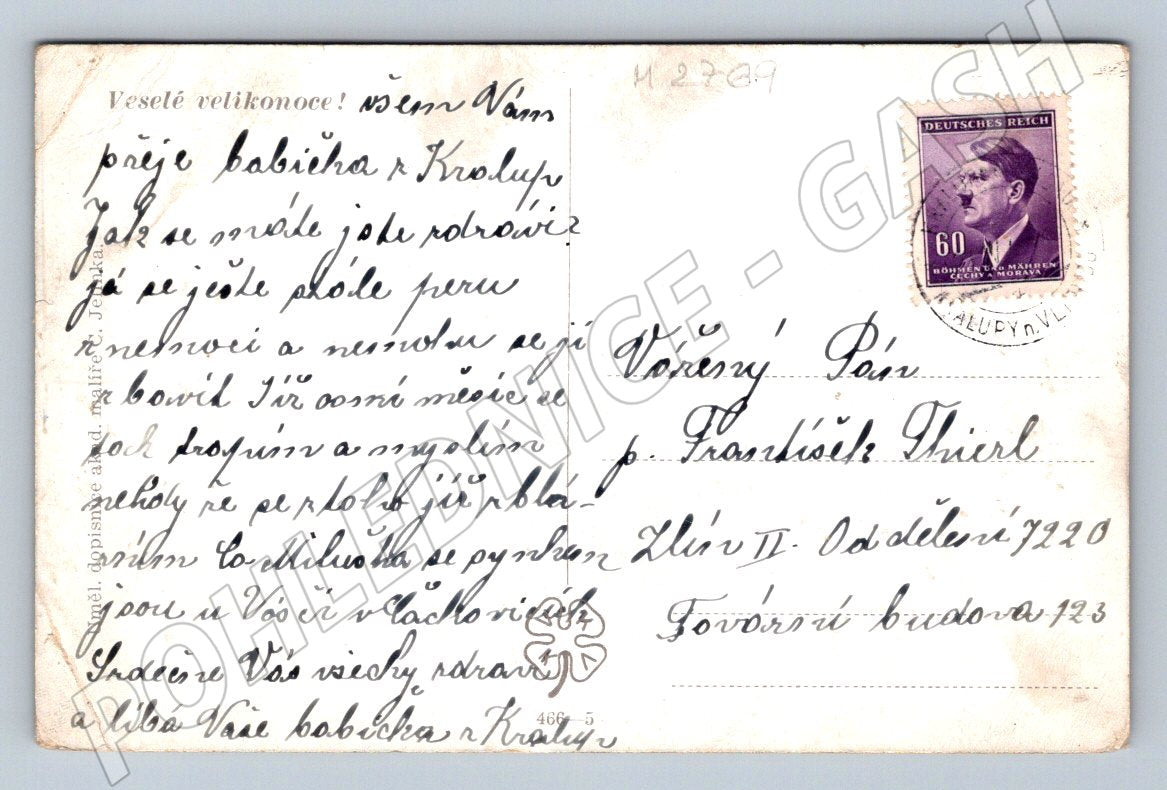 Veselé velikonoce! všem Vám
přeje babička z Kralup
Jak se máte jste zdrávi
já se ješte stále peru
z nemoci a nemohu se jí
zbavit Již osmí měsíc se
tak trapím a myslím
nehdy že se z toho již zblá-
zním Co Miluška se synkem
jsou u Vás či v Čáchovicích
Srdečne Vás všechy zdraví
a líbá Vaše babička z Kralup
Uměl. dopisnice akad. malíře C. Ježínka.
466—5
M 2769
DEUTSCHES REICH
60
BÖHMEN UND MÄHREN
ČECHY A MORAVA
KRALUPY n. VLT
Vážený Pán
p. František Thierl
Zlín II. Oddělení 7220
Tovársní budova 123
POHLEDNICE - GASH